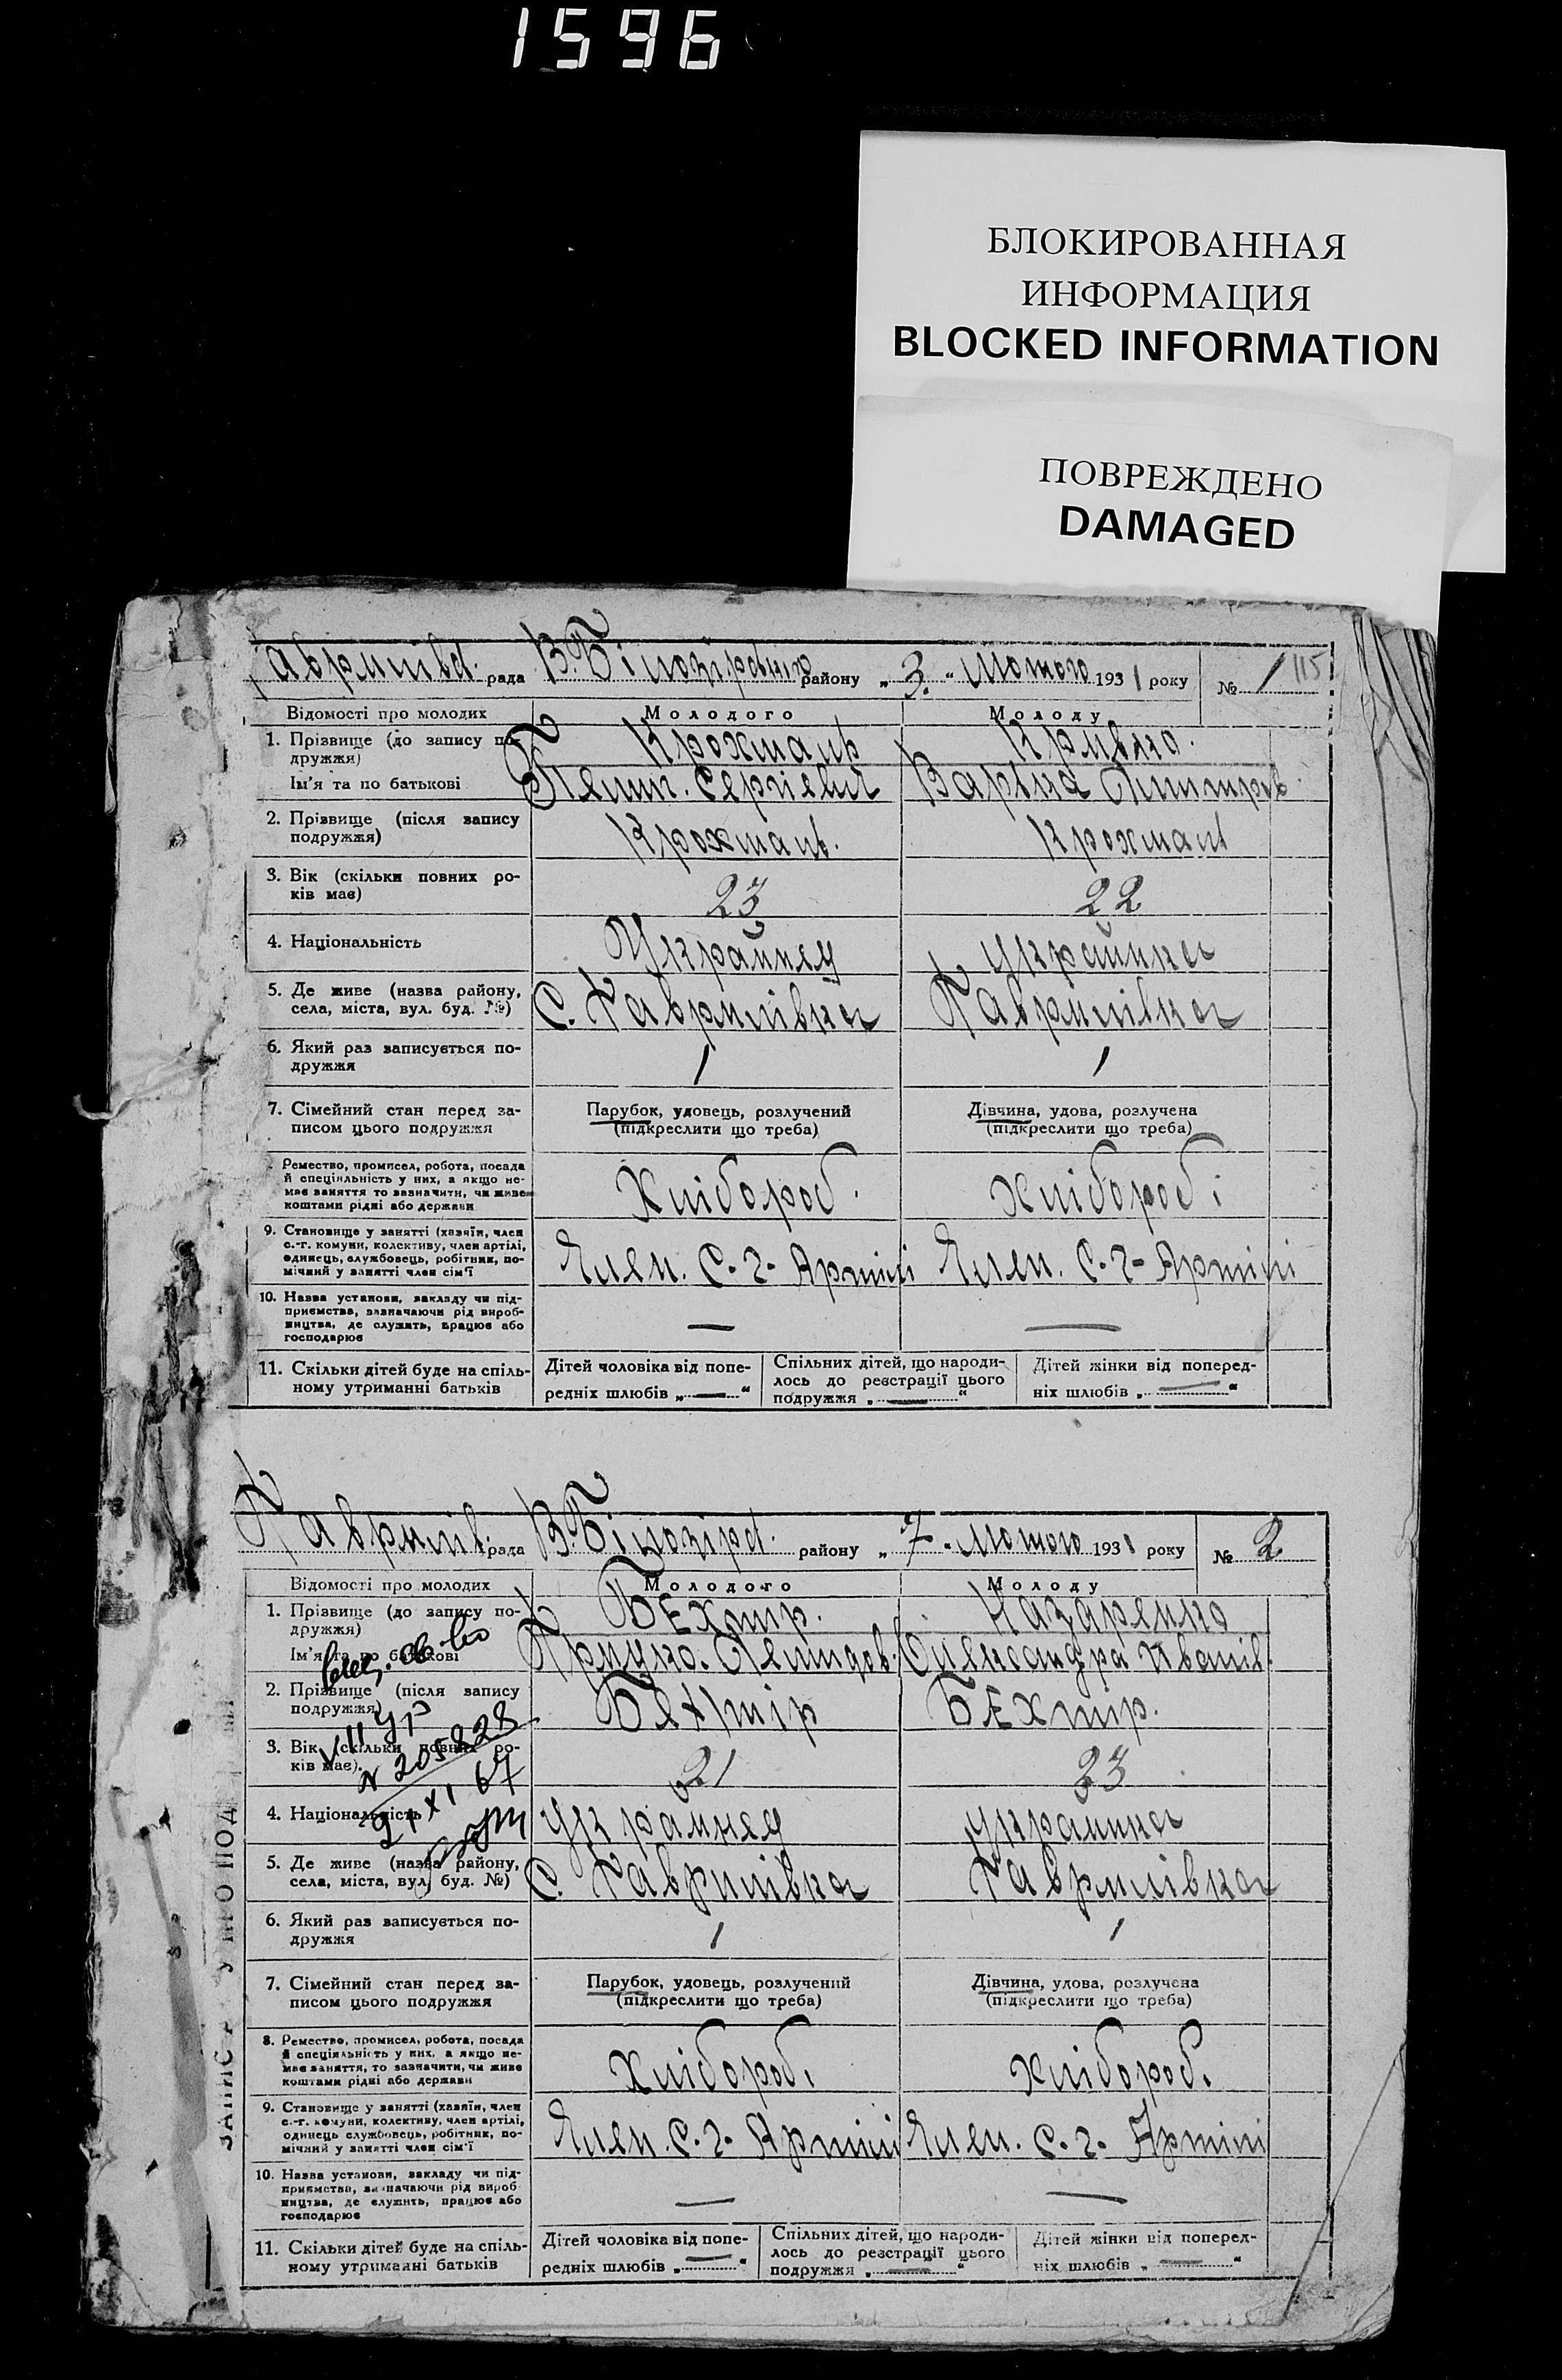 1596
БЛОКИРОВАННАЯ
ИНФОРМАЦИЯ
BLOCKED INFORMATION
ПОВРЕЖДЕНО
DAMAGED
рада району „3.“ Лютого 1931 року № 1 115
Відомості про молодих Молодого Молоду
1. Прізвище (до запису по-
дружжя) Крохмаль
Ім'я та по батькові Сергієвич
2. Прізвище (після запису
подружжя) Крохмаль. Крохмаль
3. Вік (скільки повних ро-
ків має) 23 22
4. Національність Українец Українка
5. Де живе (назва району,
села, міста, вул. буд. №) С. Гаврилівка Гаврилівка
6. Який раз записується по-
дружжя 1 1
7. Сімейний стан перед за-
писом цього подружжя
Парубок, удовець, розлучений Дівчина, удова, розлучена
(підкреслити що треба) (підкреслити що треба)
Ремество, промисел, робота, посада
й спеціяльність у них, а якщо не-
має заняття то зазначити, чи живе
коштами рідні або держави
Хлібороб. Хлібороб.
9. Становище у занятті (хазяїн, член
с.-г. комуни, колективу, член артілі,
одинець, службовець, робітник, по-
мічний у занятті член сім'ї
Член. С-г- Артілі Член. С-г- Артілі
10. Назва установи, закладу чи під-
приємства, зазначаючи рід вироб-
ництва, де служить, працює або
господарює — —
11. Скільки дітей буде на спіль-
ному утриманні батьків
Дітей чоловіка від попе-
редніх шлюбів „—“
Спільних дітей, що народи-
лось до реєстрації цього
подружжя „—“
Дітей жінки від поперед-
ніх шлюбів „—“
Гаврилів. рада В Білозірс. району „7“ Лютого 1931 року № 2
Відомості про молодих Молодого Молоду
1. Прізвище (до запису по-
дружжя) Бехтір. Назаренко
Ім'я та по батькові Грицко. Олександра Іванів.
2. Прізвище (після запису
подружжя) Бехтір Бехтір.
3. Вік (скільки повних ро-
ків має) 21 23
N 205828
4. Національність Украінец Украінка
5. Де живе (назва району,
села, міста, вул. буд. №) С. Гаврилівка Гаврилівка
6. Який раз записується по-
дружжя 1 1
7. Сімейний стан перед за-
писом цього подружжя
Парубок, удовець, розлучений Дівчина, удова, розлучена
(підкреслити що треба) (підкреслити що треба)
8. Ремество, промисел, робота, посада
й спеціяльність у них, а якщо не-
має заняття, то зазначити, чи живе
коштами рідні або держави
Хлібороб. Хлібороб.
9. Становище у занятті (хазяїн, член
с.-г. комуни, колективу, член артілі,
одинець службовець, робітник, по-
мічний у занятті член сім'ї
Член. С-г- Артілі Член. С-г- Артілі
10. Назва установи, закладу чи під-
приємства, зазначаючи рід вироб-
ництва, де служить, працює або
господарює — —
11. Скільки дітей буде на спіль-
ному утриманні батьків
Дітей чоловіка від попе-
редніх шлюбів „—“
Спільних дітей, що народи-
лось до реєстрації цього
подружжя „—“
Дітей жінки від поперед-
ніх шлюбів „—“